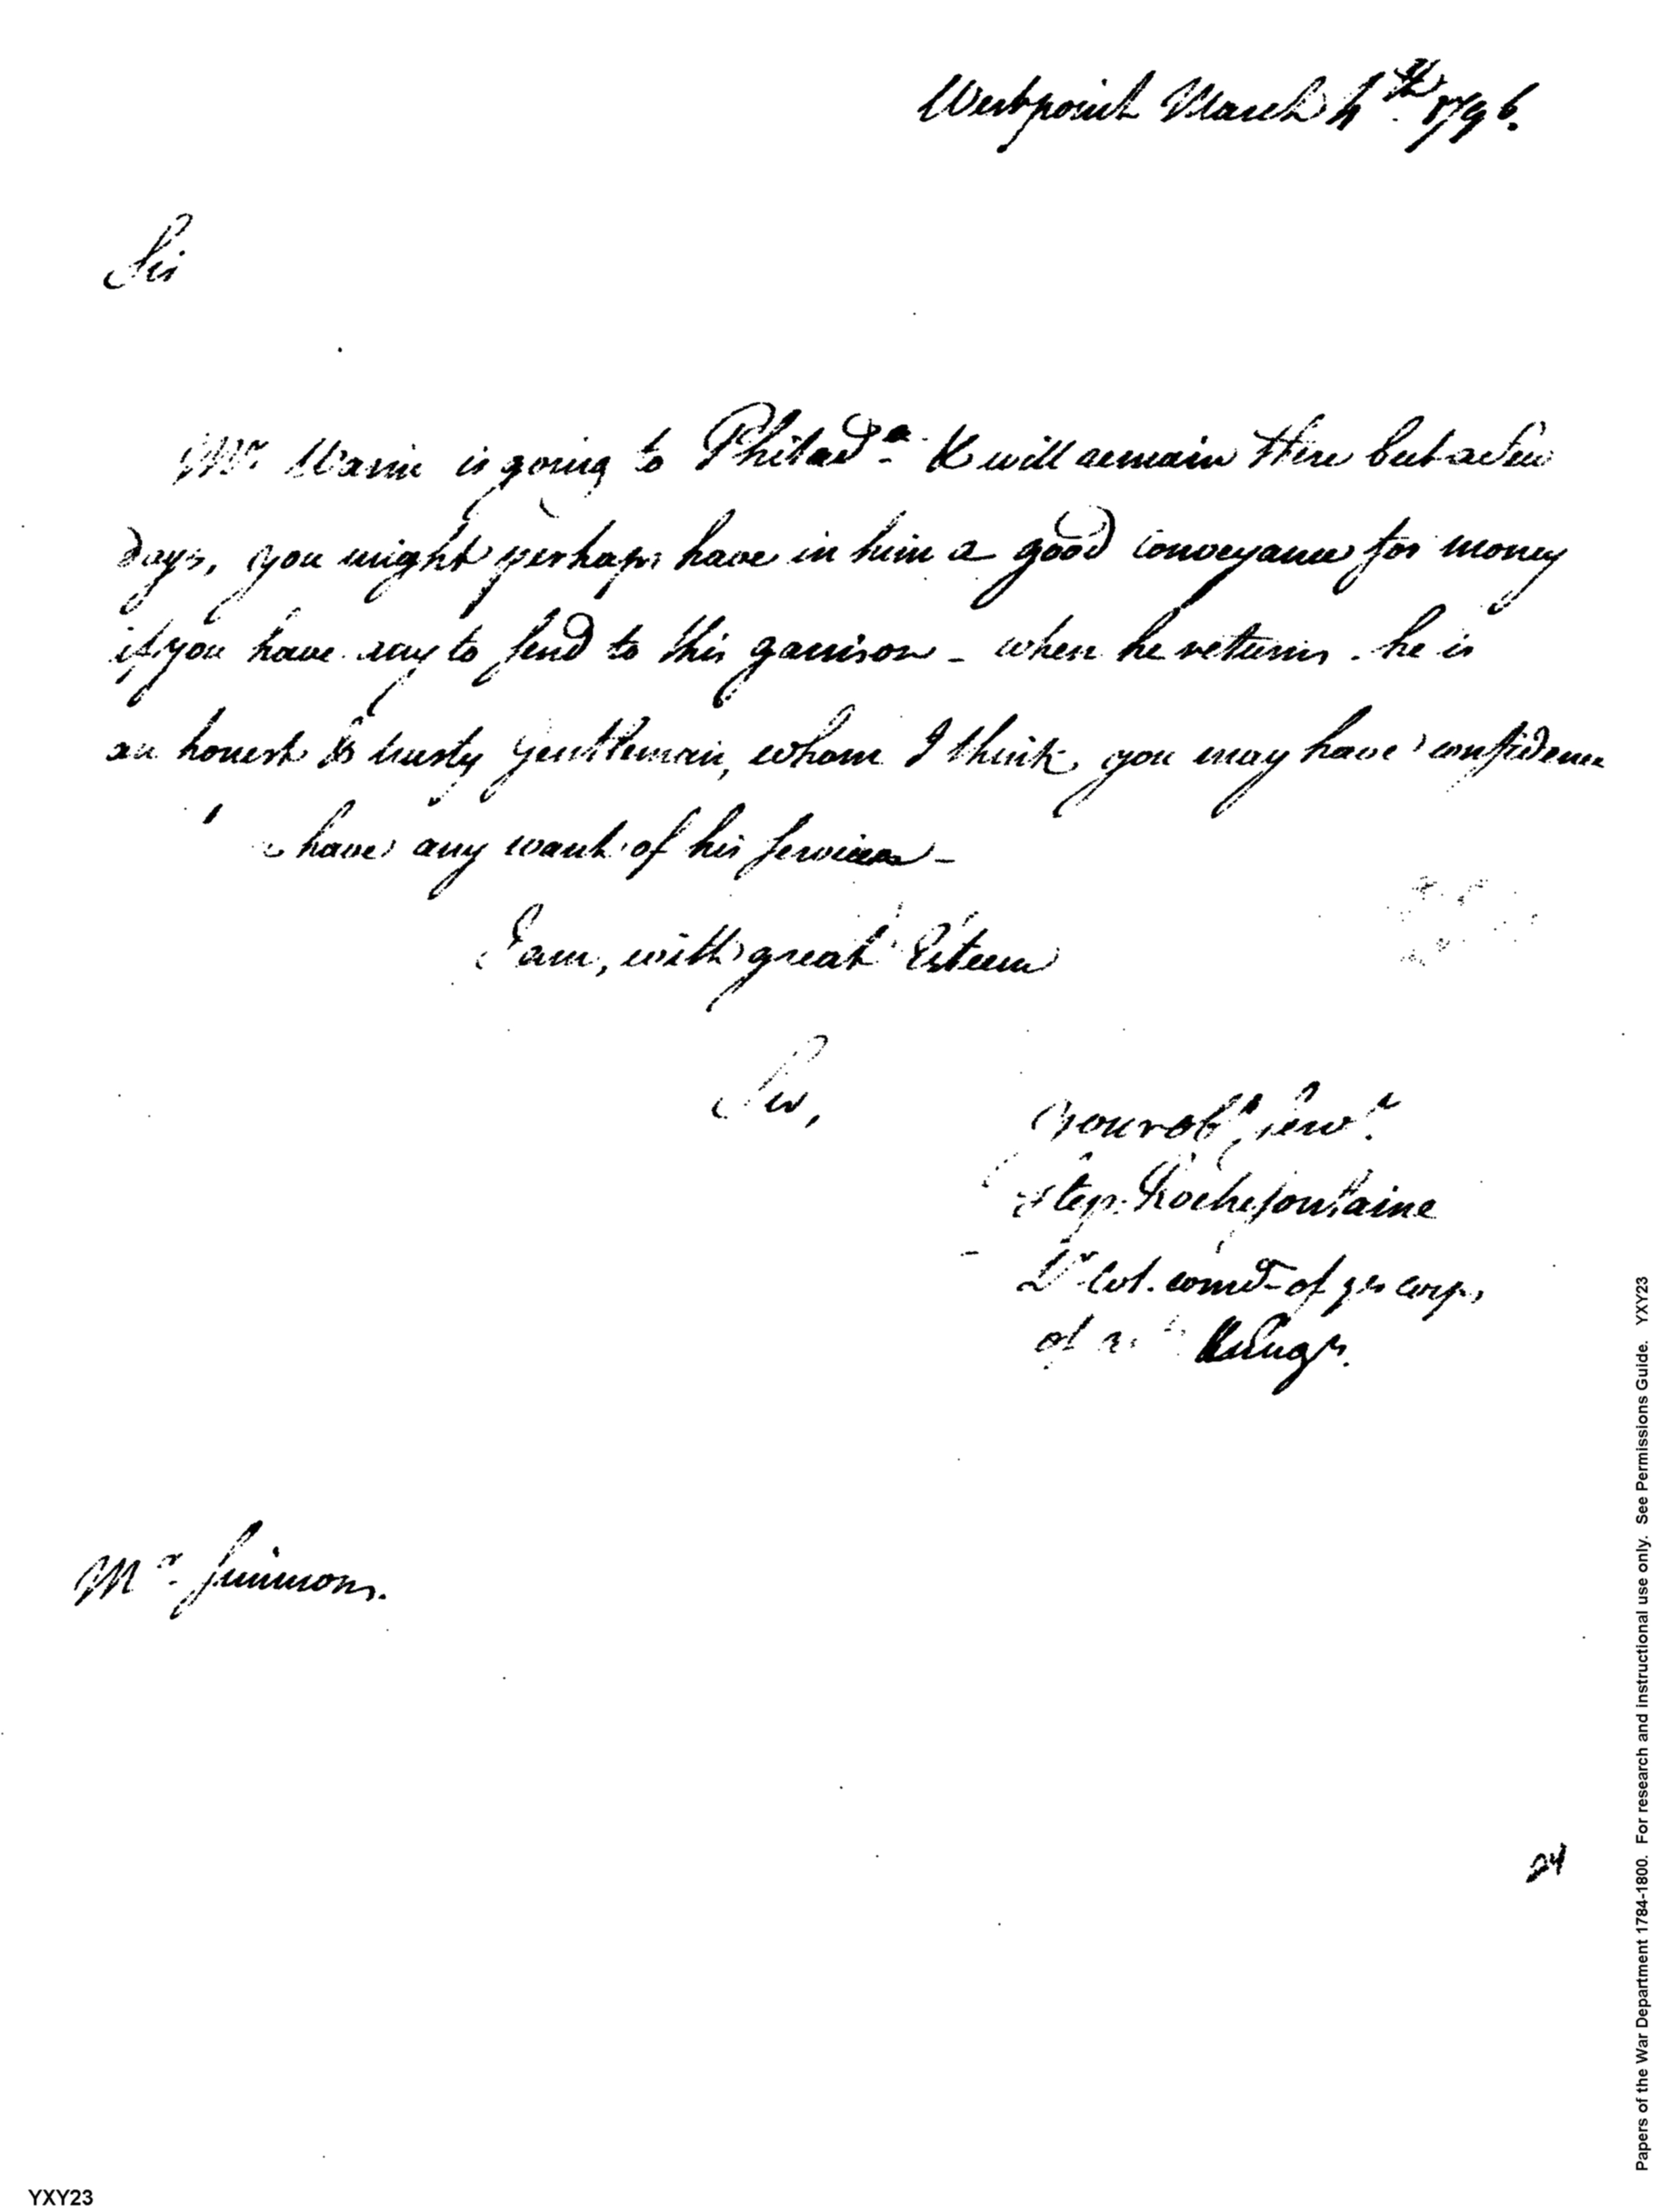 Westpoint March 4th 1796.
Sir
Mr. is going to Philada. & will remain there but a few
days, you might perhaps have in him a good conveyance for money
if you have any to send to this garrison - when he returns. he is
an honest & trusty gentleman, whom I think you may have confidence
have any want of his services -
I am, with great Esteem
Sir,
Your obt. servt.
Step. Rochefontaine
Lt Col. comdt of ye corps
of Engrs.
Mr. Simmons.
24
Papers of the War Department 1784-1800. For research and instructional use only. See Permissions Guide. YXY23
YXY23